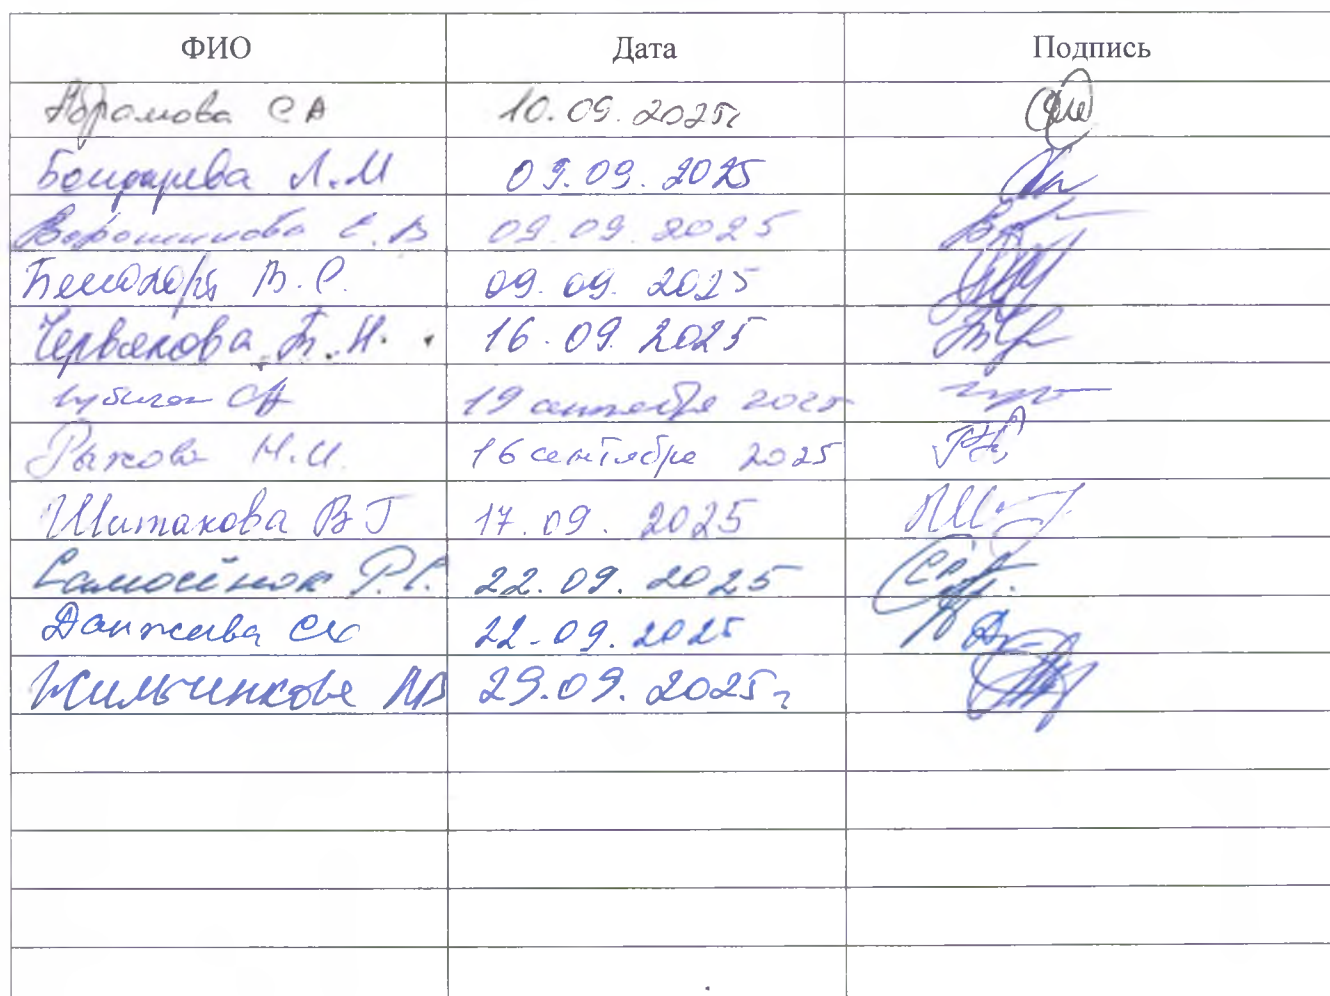 ФИО Дата Подпись
Абрамова С А 10.09.2025г
Бондарева Л.М 09.09.2025
Ворошилова С.В 09.09.2025
В.С. 09.09.2025
Червякова Т.Н. 16.09.2025
19 сентября 2025
Рыжова Н.И. 16 сентября 2025
Шитакова В Г 17.09.2025
Самосёнок Р.С. 22.09.2025
22.09.2025
Жильченкова 29.09.2025г